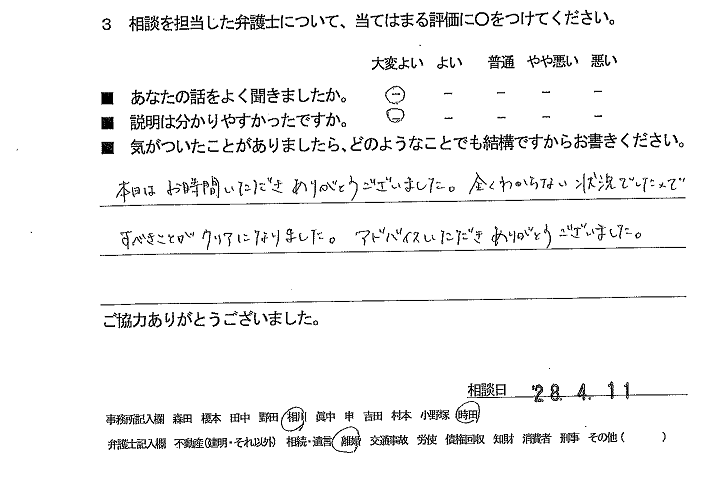 3 相談を担当した弁護士について、当てはまる評価に○をつけてください。
大変よい よい 普通 やや悪い 悪い
■ あなたの話をよく聞きましたか。 － － － － －
■ 説明は分かりやすかったですか。 － － － － －
■ 気がついたことがありましたら、どのようなことでも結構ですからお書きください。
本日はお時間いただきありがとうございました。全くわからない状況でしたので
すべきことがクリアになりました。アドバイスいただきありがとうございました。
ご協力ありがとうございました。
相談日 '28.4.11
事務所記入欄 森田 榎本 田中 野田 相川 眞中 申 吉田 村本 小野塚 時田
弁護士記入欄 不動産(建明・それ以外) 相続・遺言 離婚 交通事故 労使 債権回収 知財 消費者 刑事 その他( )